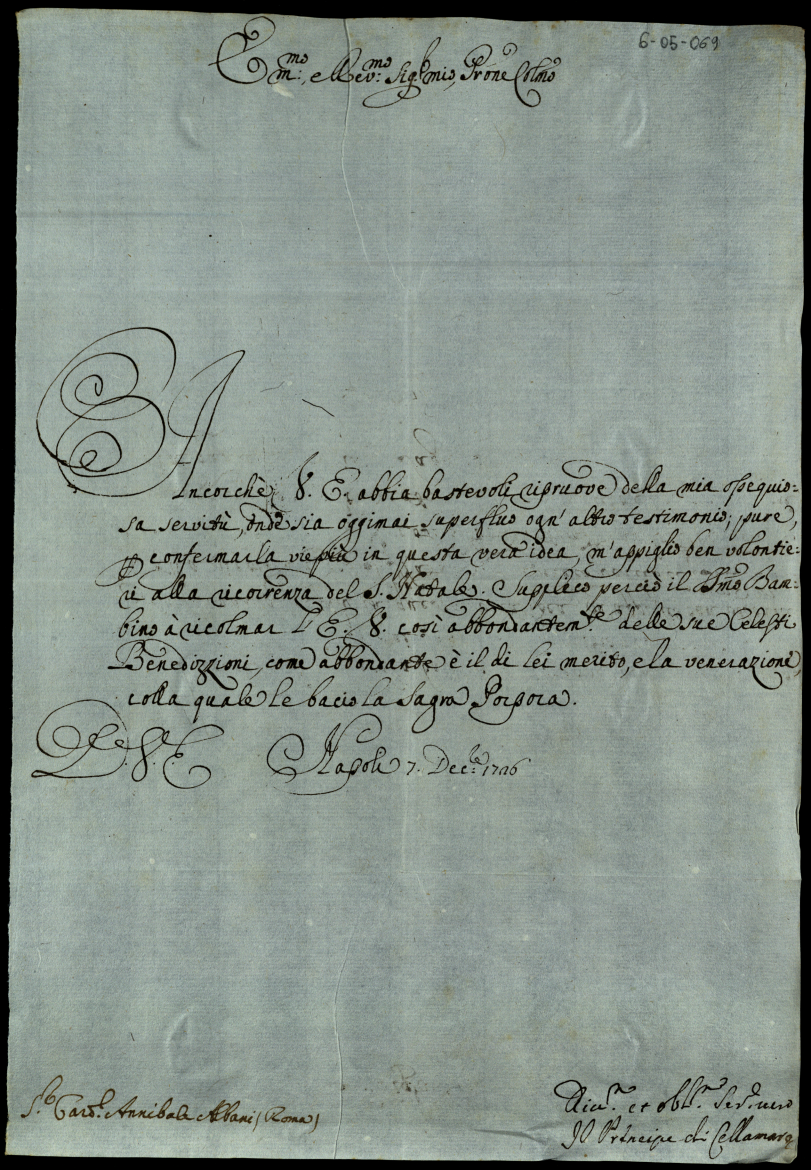 6-05-069
Em.mo, e Rev.mo Sig.r mio, Prone Colmo
Ancorchè V. E. abbia bastevoli ripruove della mia ossequio=
sa servitù, onde sia oggimai superfluo ogn' altro testimonio; pure,
per confermarla vie più in questa vera idea, m'appiglio ben volontie=
ri alla ricorrenza del S. Natale. Supplico perciò il SSmo Bam=
bino à ricolmar l'E. V. così abbondantem.te delle sue Celesti
Benedizzioni, come abbondante è il di lei merito, e la venerazione,
colla quale le bacio la Sagra Porpora.
D. V. E. Napoli 7. Dec.e 1726
S.r Card.l Annibale Albani (Roma)
Div.mo et obl.mo Ser.r vero
Il Principe di Cellamare